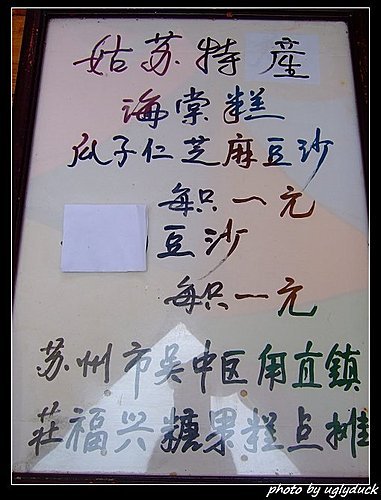 姑苏特産
海棠糕
瓜子仁芝麻豆沙
每只一元
豆沙
每只一元
苏州市吴中区甪直鎮
莊福兴糖果糕点摊
photo by uglyduck